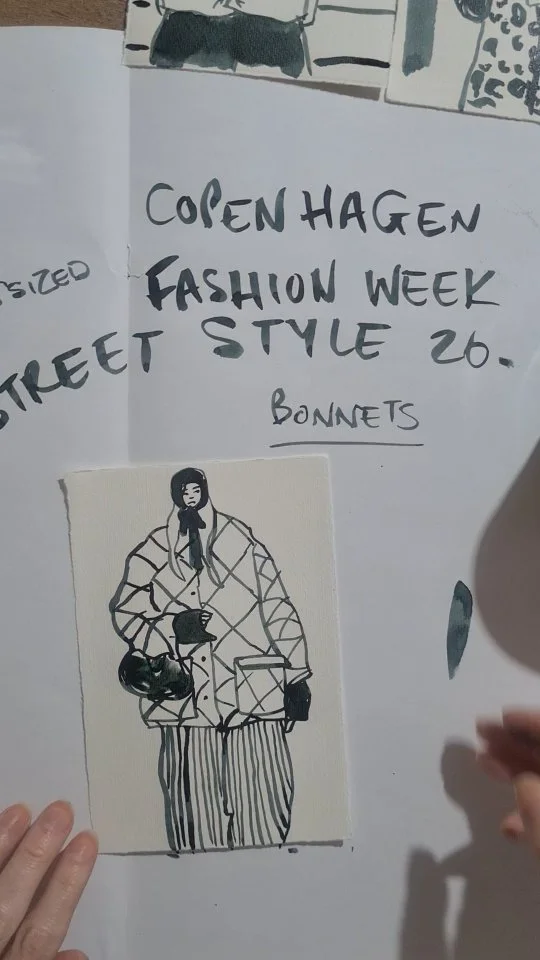 COPENHAGEN
FASHION WEEK
STREET STYLE 26.
BONNETS